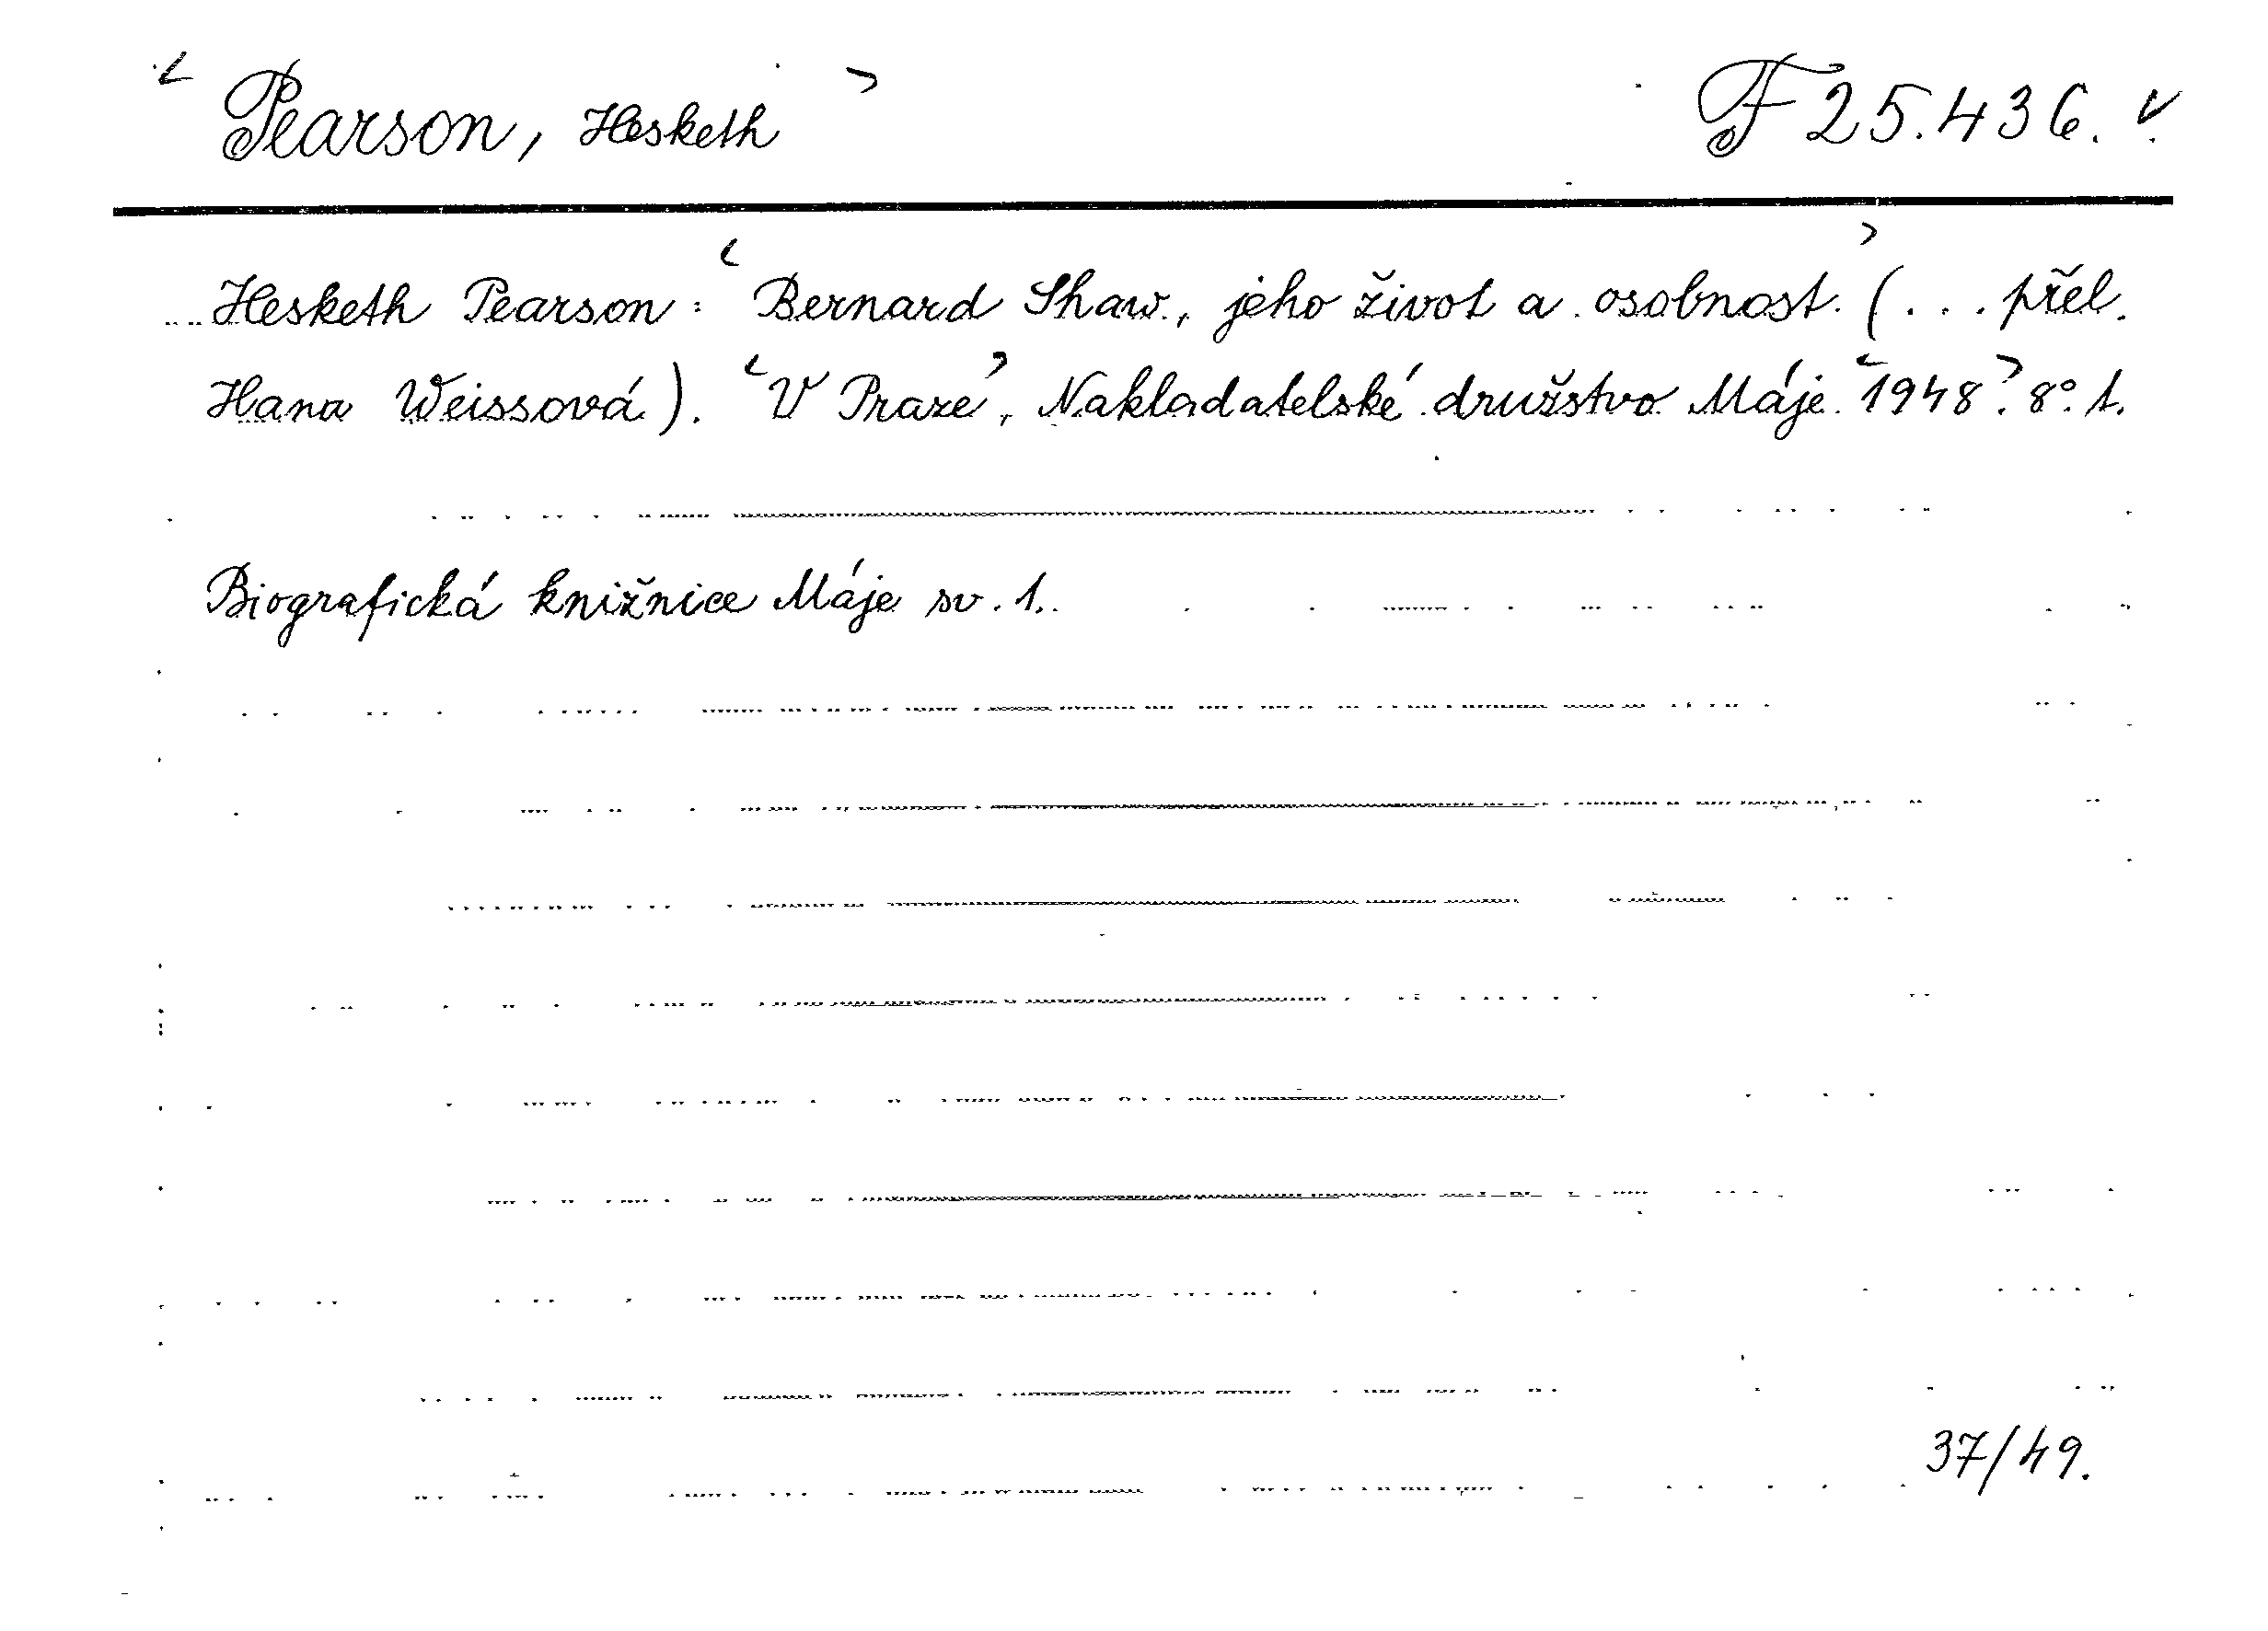 < Pearson, Hesketh > F 25.436. v.
Hesketh Pearson: <Bernard Shaw, jeho život a osobnost.> (... přel.
Hana Weissová). <V Praze>, Nakladatelské družstvo Máje <1948>. 8°. 1.
Biografická knižnice Máje sv. 1.
37/49.